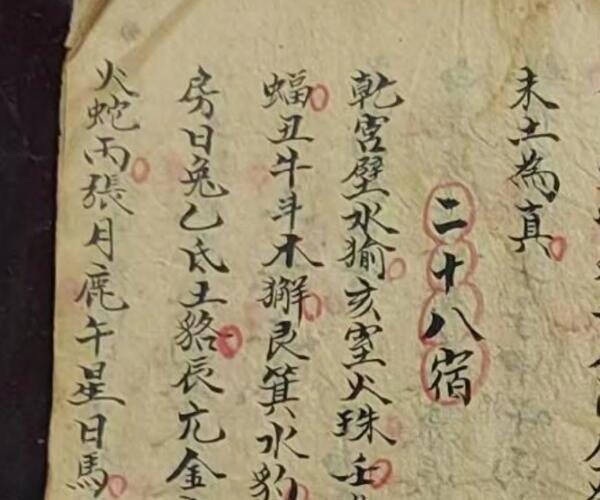 未土為真
二十八宿
乾宮壁水㺄亥室火珠壬
蝠丑牛斗木獬艮箕水豹
房日兔乙氐土貉辰亢金
火蛇丙張月鹿午星日馬